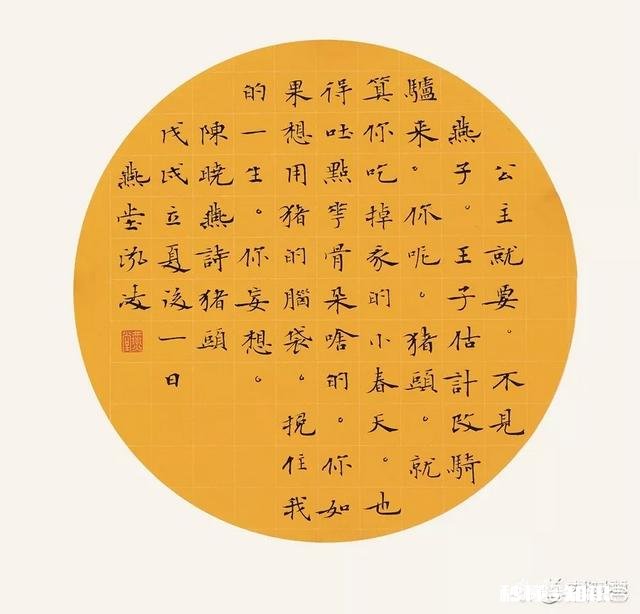 公主就要。不見
燕子。王子估計改騎
驢來。你呢。猪頭。就
算你吃掉家的小春天。也
得吐點華骨朵啥的。你如
果想用猪的腦袋。挽住我
的一生。你妄想。
陳曉燕詩猪頭
戊戌立夏後一日
燕堂泓凌